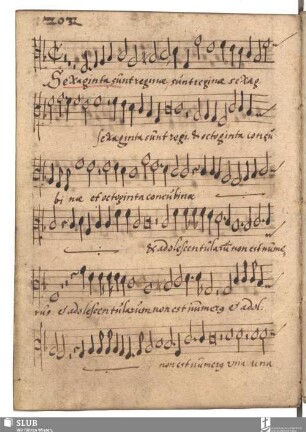 Sexaginta sunt reginæ sunt reginæ sexag
sexaginta sunt regi. & octoginta concu
bi næ et octoginta concubinæ
& adolescentularũ non est nũme
rus et adolescentularum non est numerꝰ et adol:
non est numerꝰ vna vna
SLUB
Wir führen Wissen.